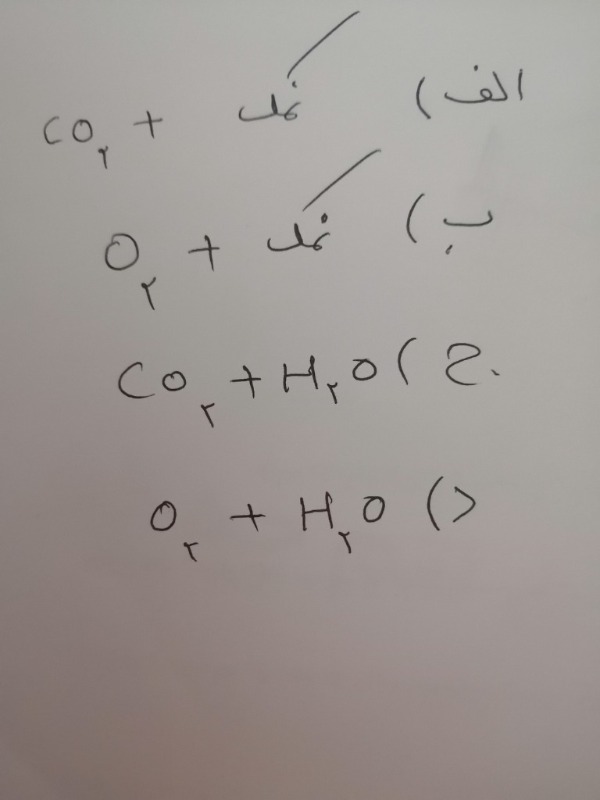 الف) نمک + CO۲
ب) نمک + O۲
ج) CO۲ + H۲O
د) O۲ + H۲O